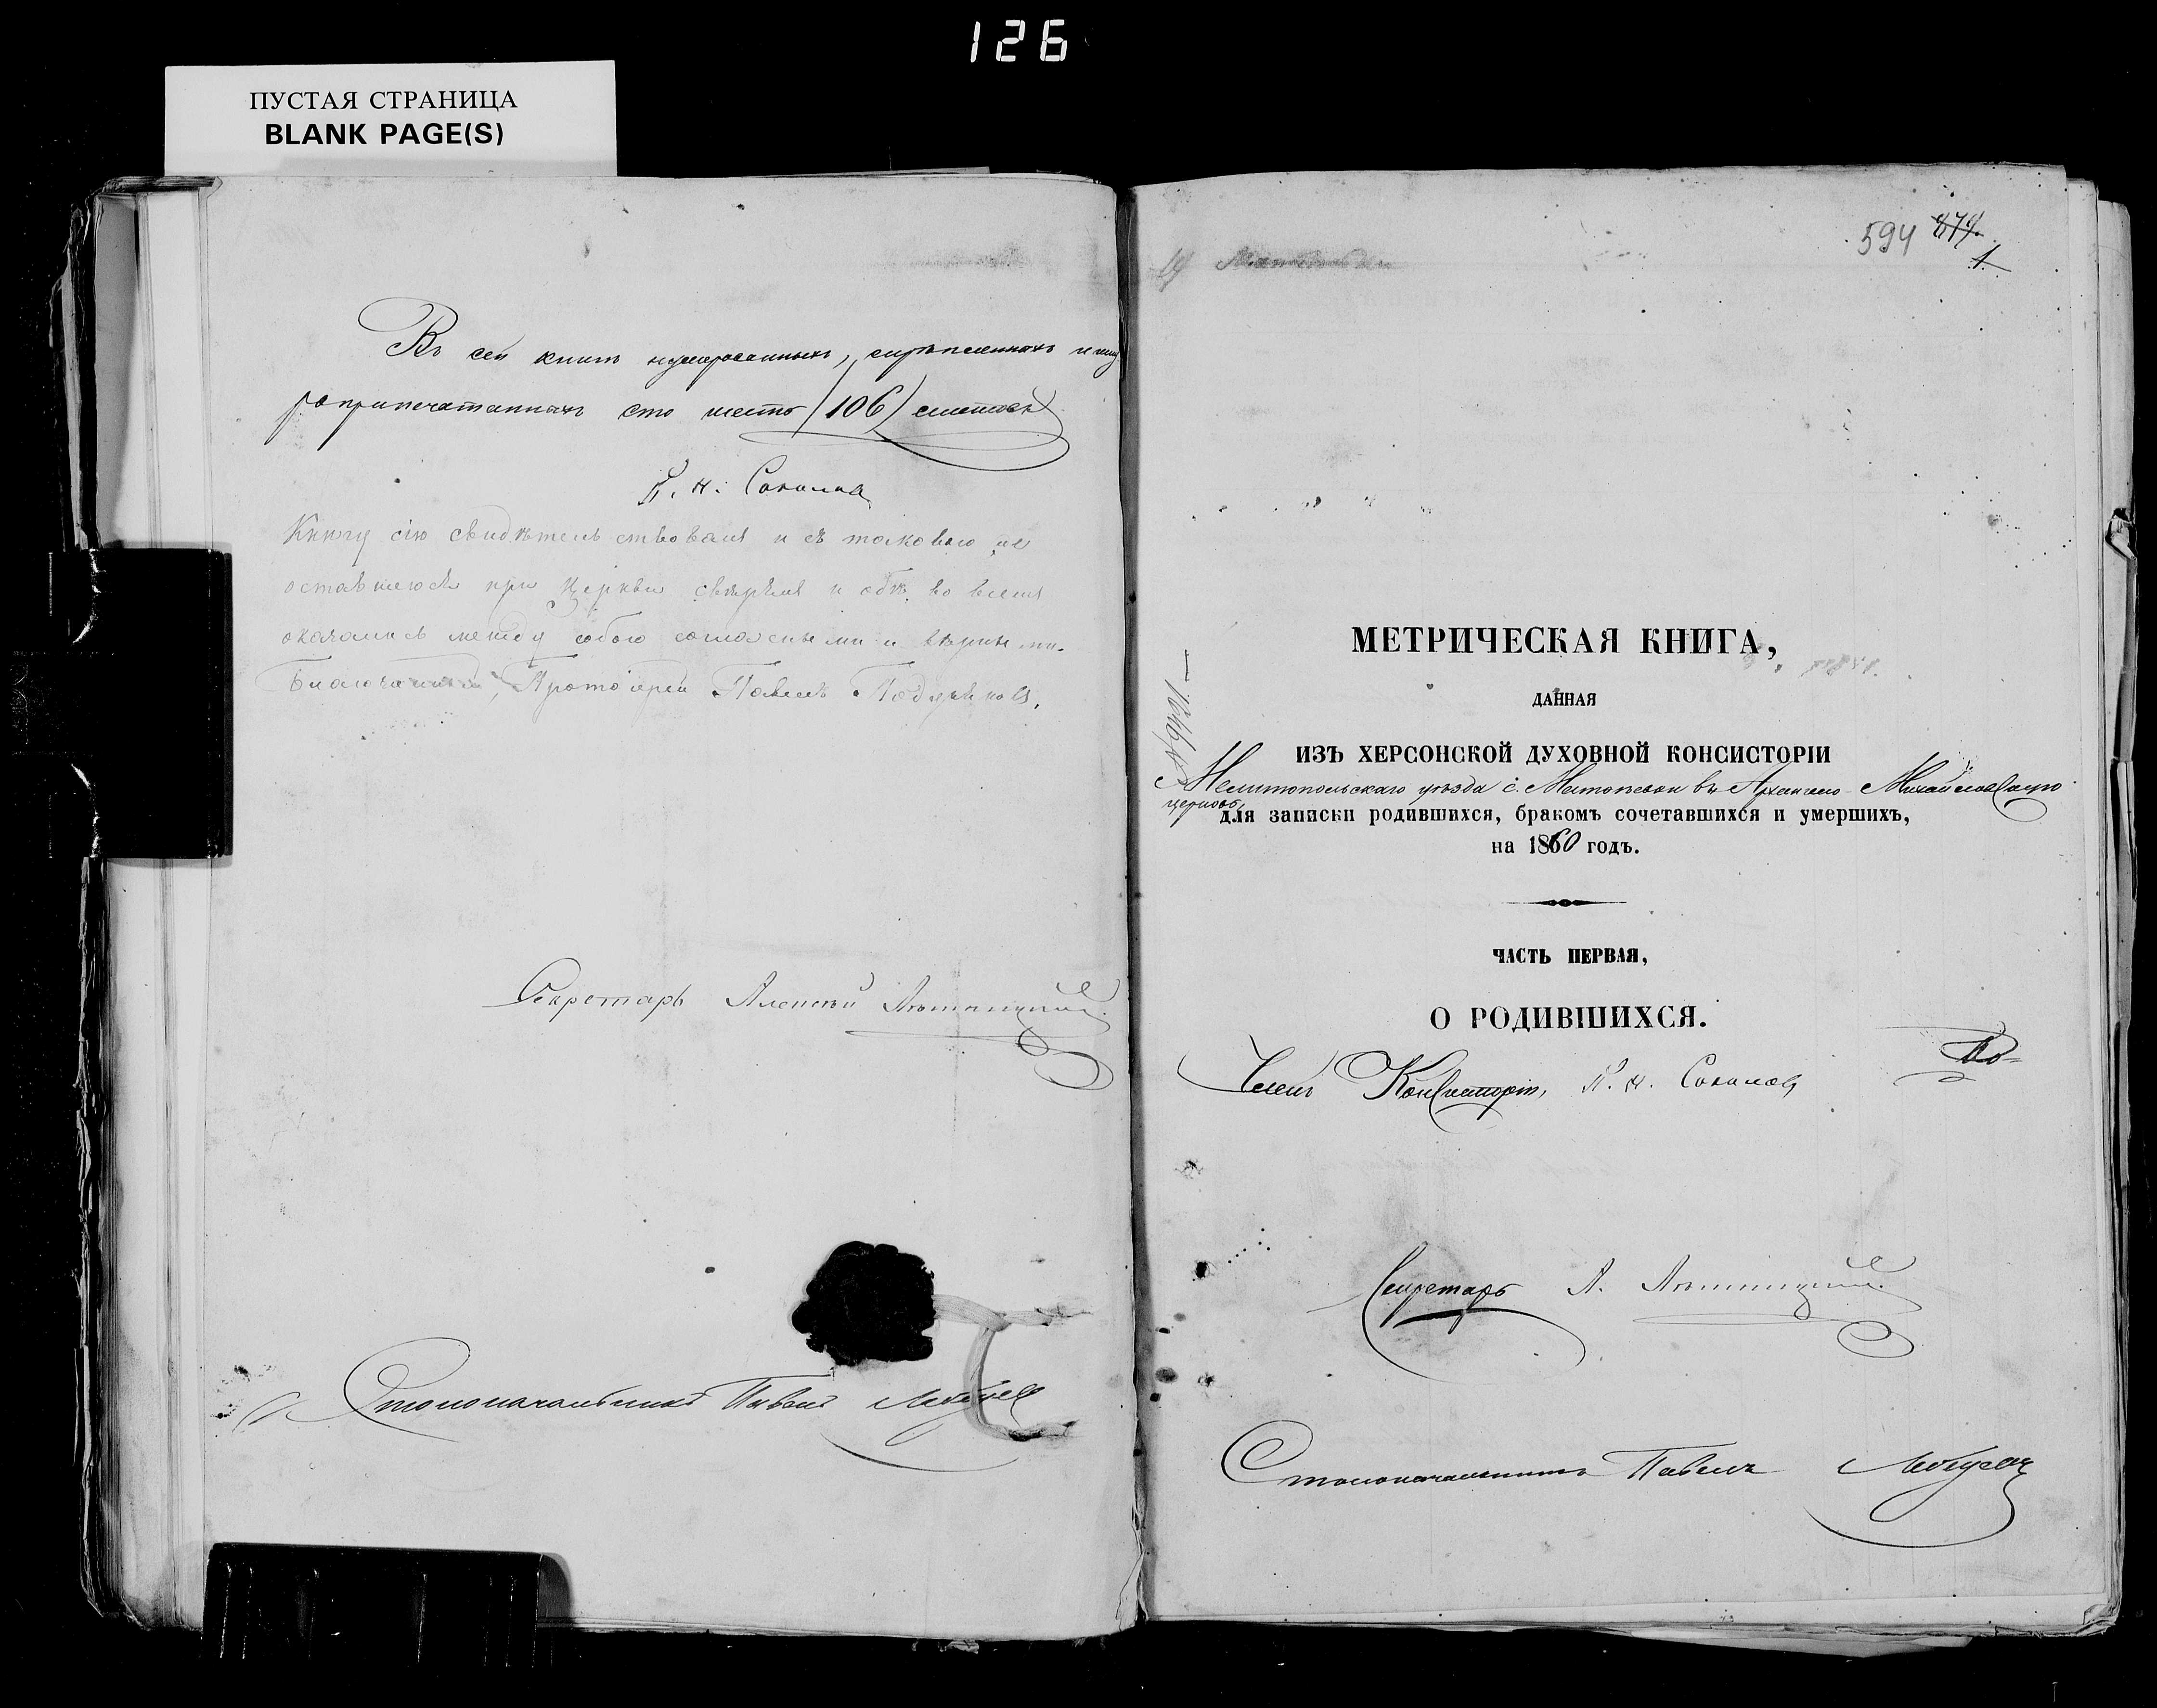 126
ПУСТАЯ СТРАНИЦА
BLANK PAGE(S)
Въ сей книгѣ нумерованныхъ, скрѣпленныхъ и шну
роприпечатанныхъ сто шесть (106) листовъ
К. П. Соколовъ
Книгу сію свидѣтельствовалъ и съ таковою же
оставшеюся при Церкви свѣрялъ и обѣ во всемъ
оказались между собою согласными и вѣрными.
Благочинный, Протоіерей Павелъ
Секретарь Алексѣй
Столоначальникъ Павелъ
594 874
1.
МЕТРИЧЕСКАЯ КНИГА,
ДАННАЯ
ИЗЪ ХЕРСОНСКОЙ ДУХОВНОЙ КОНСИСТОРІИ
Мелитопольскаго уѣзда с. Матопевки въ Архангело-Михайловскую
церковь,
для записки родившихся, бракомъ сочетавшихся и умершихъ,
на 1860 годъ.
ЧАСТЬ ПЕРВАЯ,
О РОДИВШИХСЯ.
Членъ Консисторіи, Соколовъ
По-
Секретарь А.
Столоначальникъ Павелъ